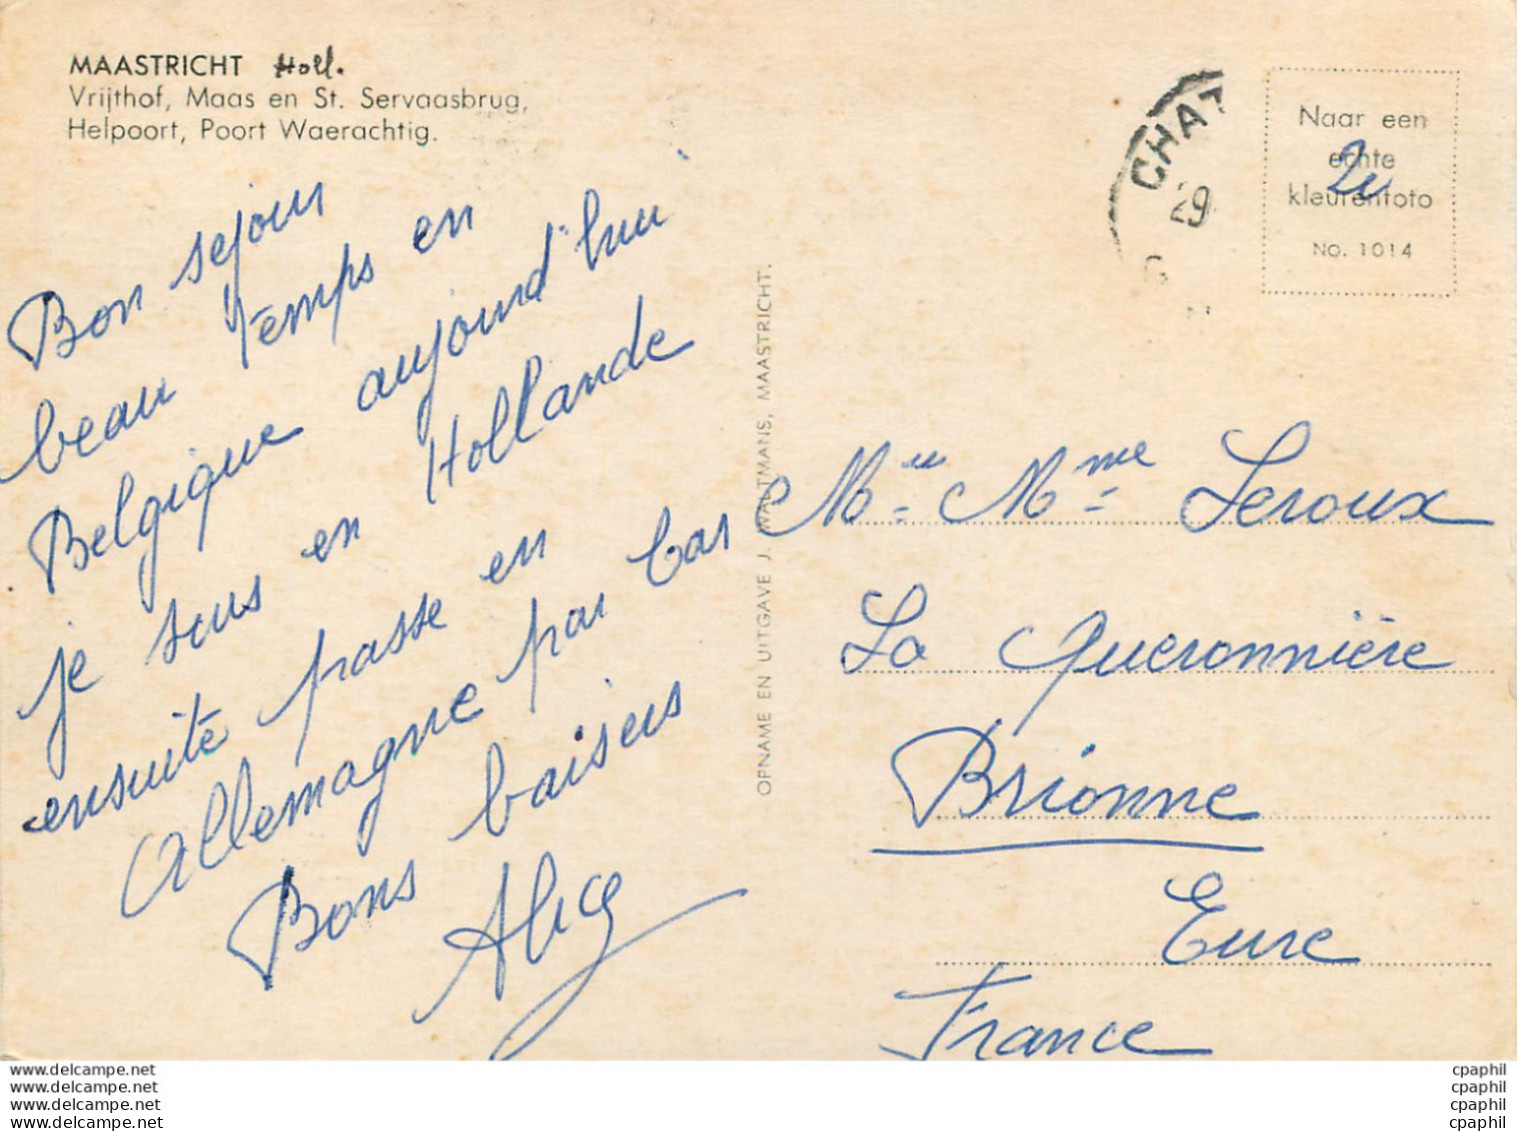 MAASTRICHT Holl.
Vrijthof, Maas en St. Servaasbrug,
Helpoort, Poort Waerachtig.
CHAT
29
Naar een
echte
kleurenfoto
No. 1014
Bon sejour
beau temps en
Belgique aujourd'hui
je suis en Hollande
ensuite passe en
Allemagne par Car
Bons baisers
OPNAME EN UITGAVE J. WALTMANS, MAASTRICHT.
Mr Mme Leroux
La Queronnière
Brionne
Eure
France
www.delcampe.net
www.delcampe.net
www.delcampe.net
www.delcampe.net
cpaphil
cpaphil
cpaphil
cpaphil